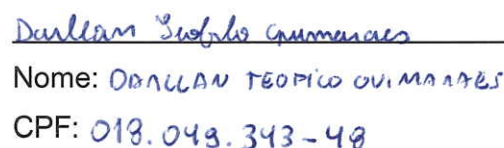 Darllan Teofilo Guimaraes
Nome: DARLLAN TEOFILO GUIMARAES
CPF: 018.049.343-48